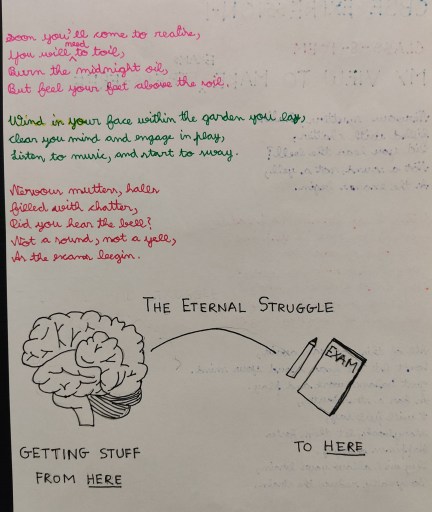 Soon you'll come to realise,
You will need to toil,
Burn the midnight oil,
But feel your feet above the soil.
Wind in your face within the garden you lay,
clear you mind and engage in play,
Listen to music, and start to sway.
Nervous mutters, halls
filled with chatter,
Did you hear the bell?
Not a sound, not a yell,
As the exams begin.
THE ETERNAL STRUGGLE
EXAM
GETTING STUFF
FROM HERE
TO HERE